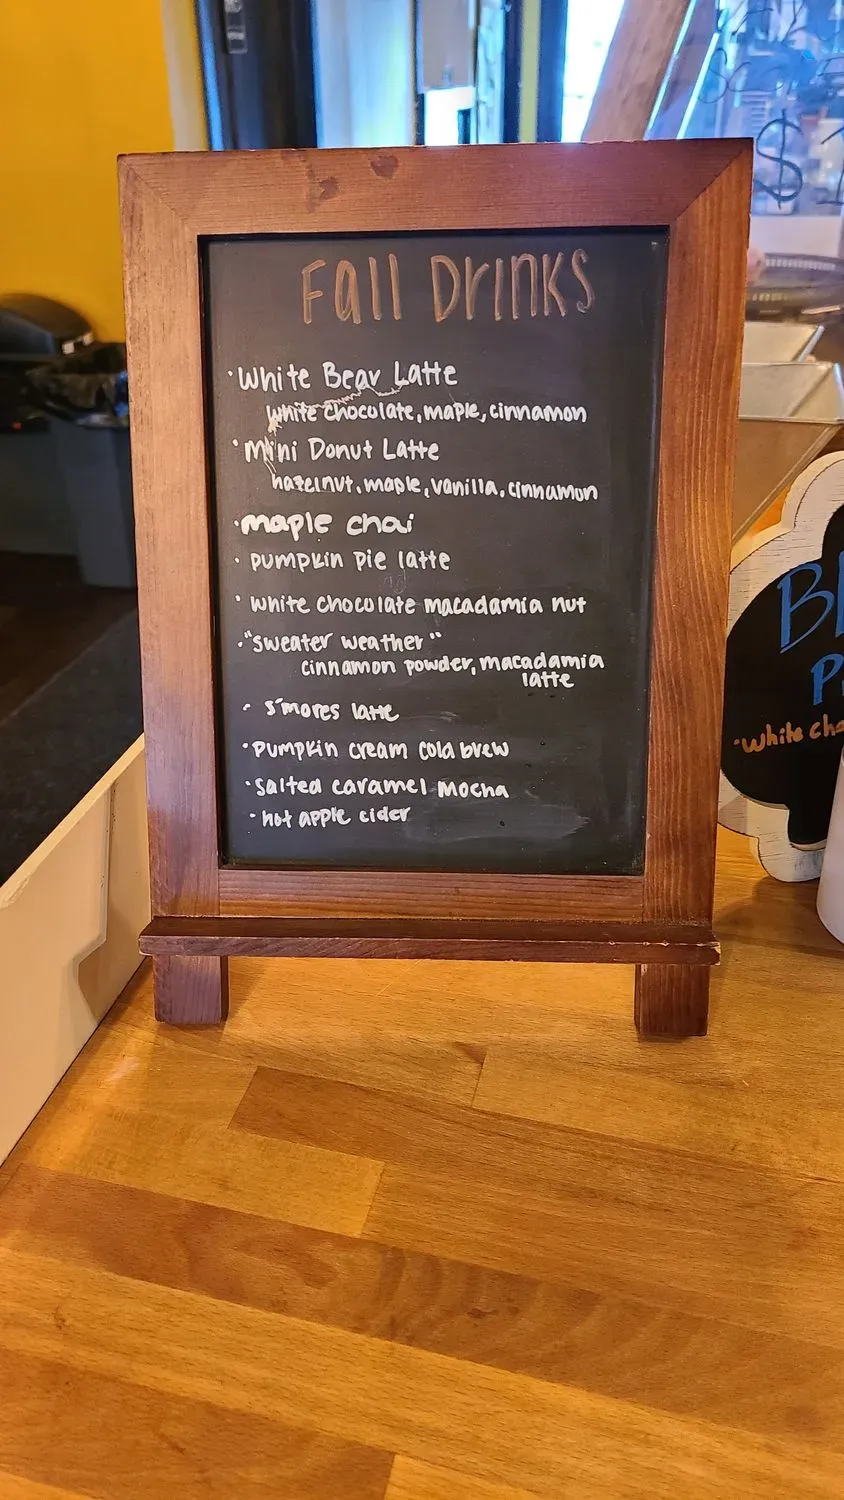 Fall Drinks
· White Bear Latte
white chocolate, maple, cinnamon
· Mini Donut Latte
hazelnut, maple, vanilla, cinnamon
· maple chai
· pumpkin pie latte
· white chocolate macadamia nut
· "sweater weather"
cinnamon powder, macadamia
latte
· s'mores latte
· pumpkin cream cold brew
· salted caramel mocha
· hot apple cider
· White Cho
$1